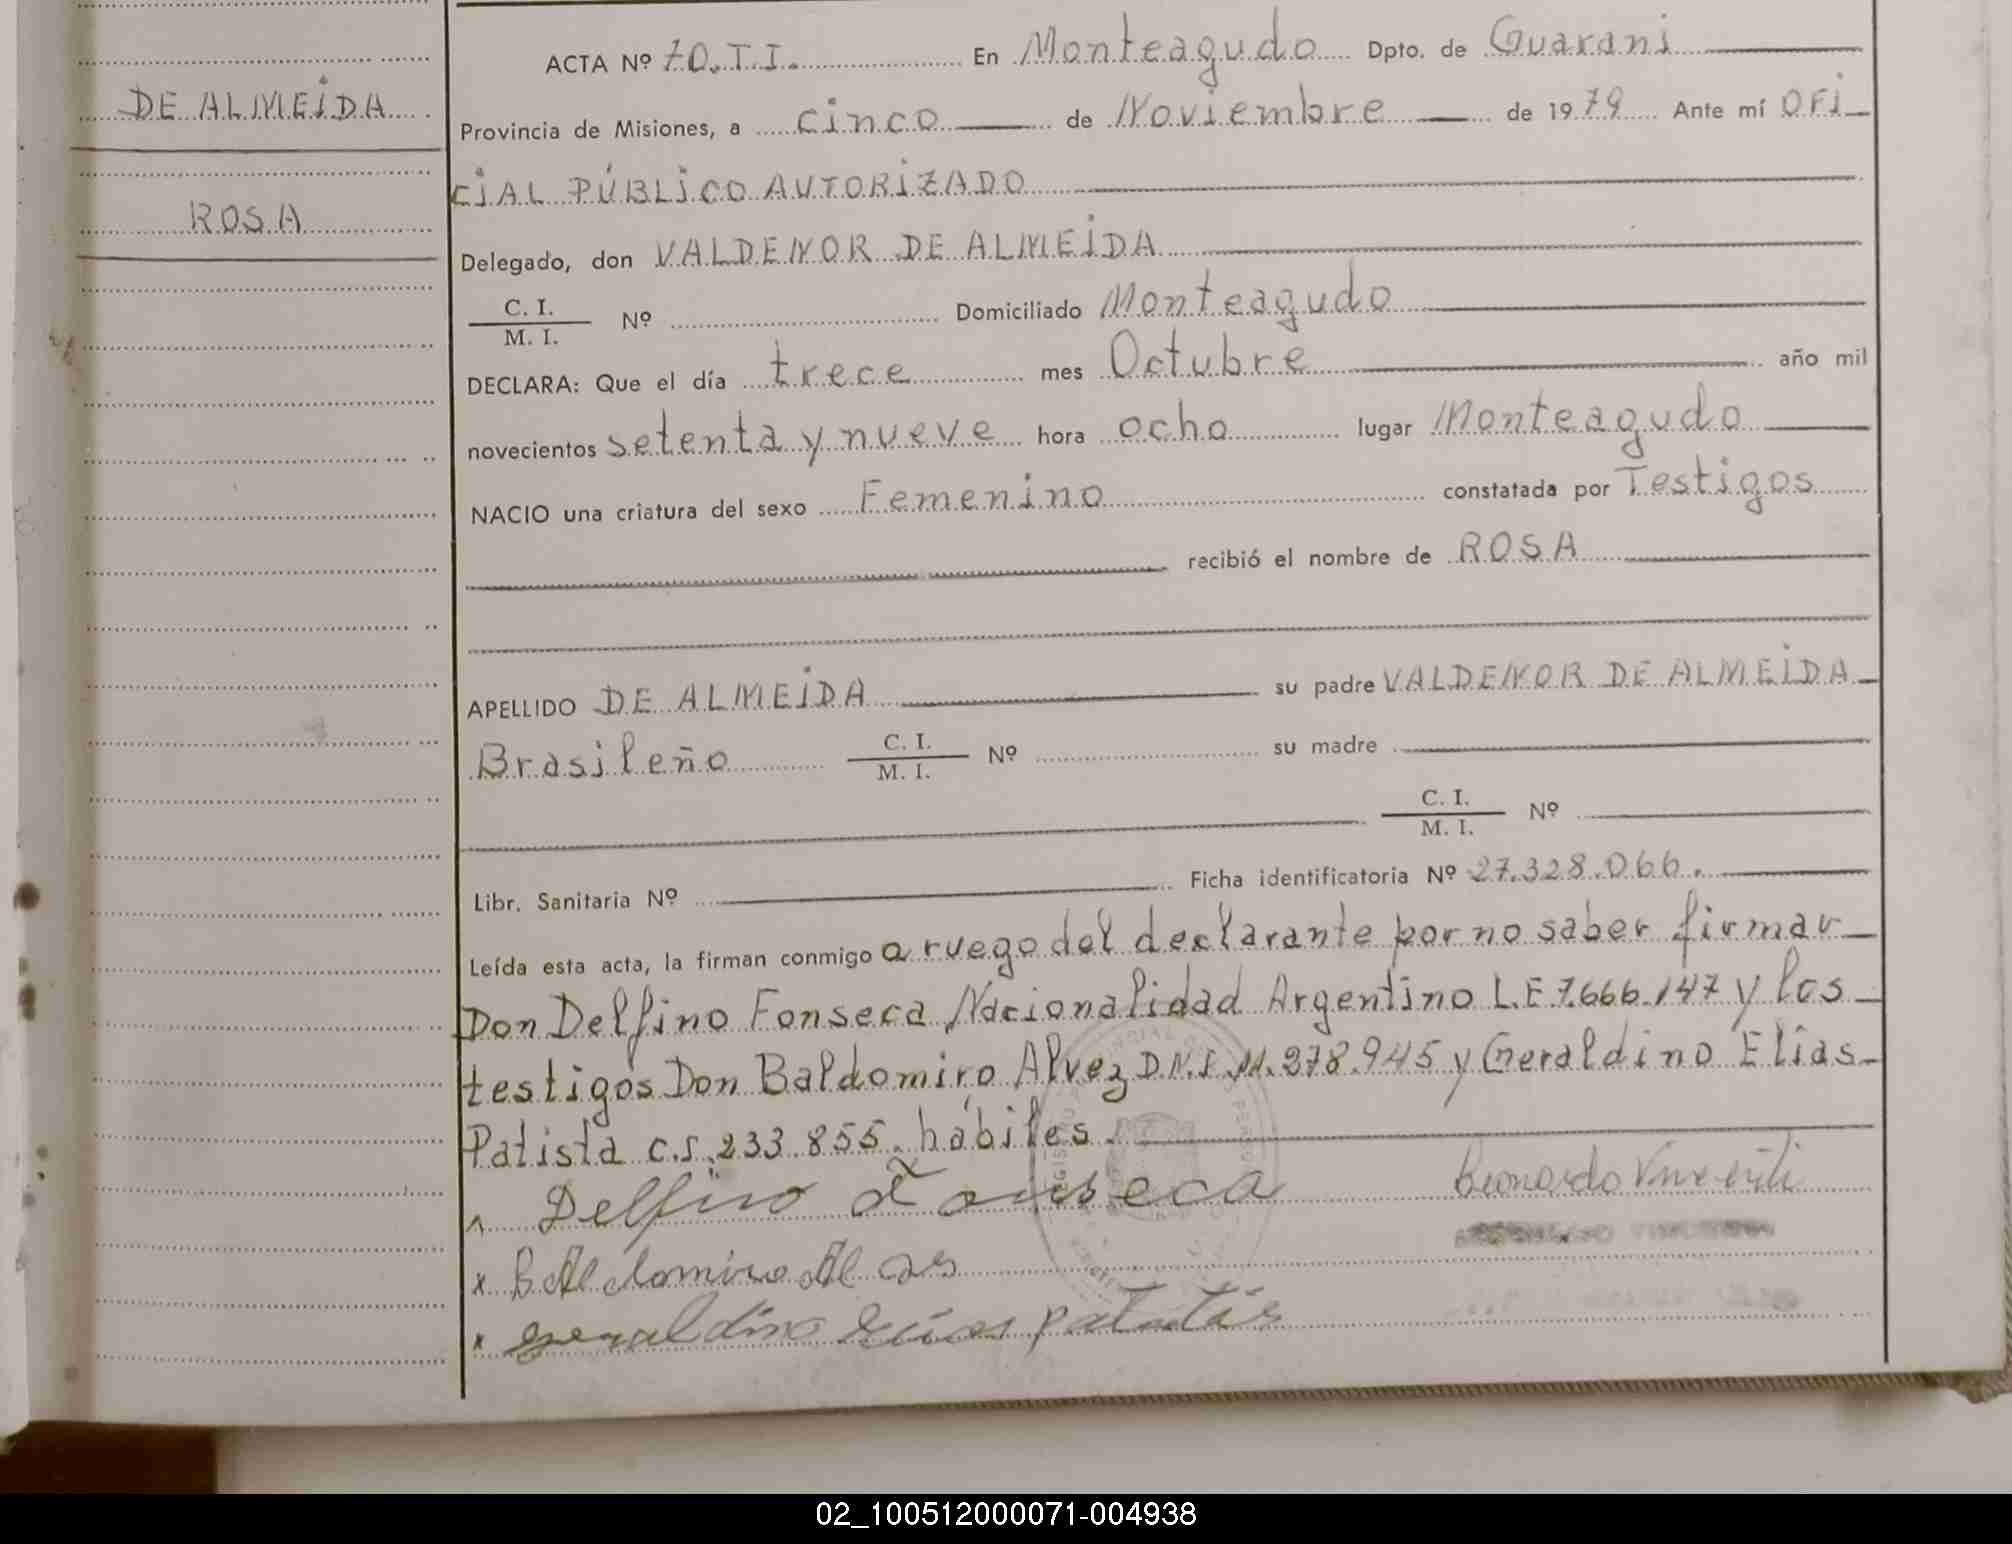 DE ALMEIDA
ROSA
ACTA Nº 70.T.I. En Monteagudo Dpto. de Guarani
Provincia de Misiones, a cinco de Noviembre de 1979 Ante mí OFI
CIAL PÚBLICO AUTORIZADO
Delegado, don VALDENOR DE ALMEIDA
C. I.
M. I. Nº Domiciliado Monteagudo
DECLARA: Que el día trece mes Octubre año mil
novecientos setenta y nueve hora ocho lugar Monteagudo
NACIO una criatura del sexo Femenino constatada por Testigos
recibió el nombre de ROSA
APELLIDO DE ALMEIDA su padre VALDENOR DE ALMEIDA
Brasileño C. I.
M. I. Nº su madre
C. I.
M. I. Nº
Libr. Sanitaria Nº Ficha identificatoria Nº 27.328.066.
Leída esta acta, la firman conmigo a ruego del declarante por no saber firmar
Don Delfino Fonseca Nacionalidad Argentino L.E 7.666.147 y los
testigos Don Baldomiro Alvez D.N.I. 378.945 y Geraldino Elias
Patista C.I. 233.855. hábiles.
Delfino Fonseca
Leonardo
BAldomiro Al
geraldino
02_100512000071-004938